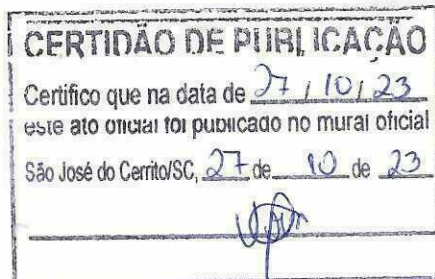 CERTIDÃO DE PUBLICAÇÃO
Certifico que na data de 27 / 10 / 23
este ato oficial foi publicado no mural oficial
São José do Cerrito/SC, 27 de 10 de 23